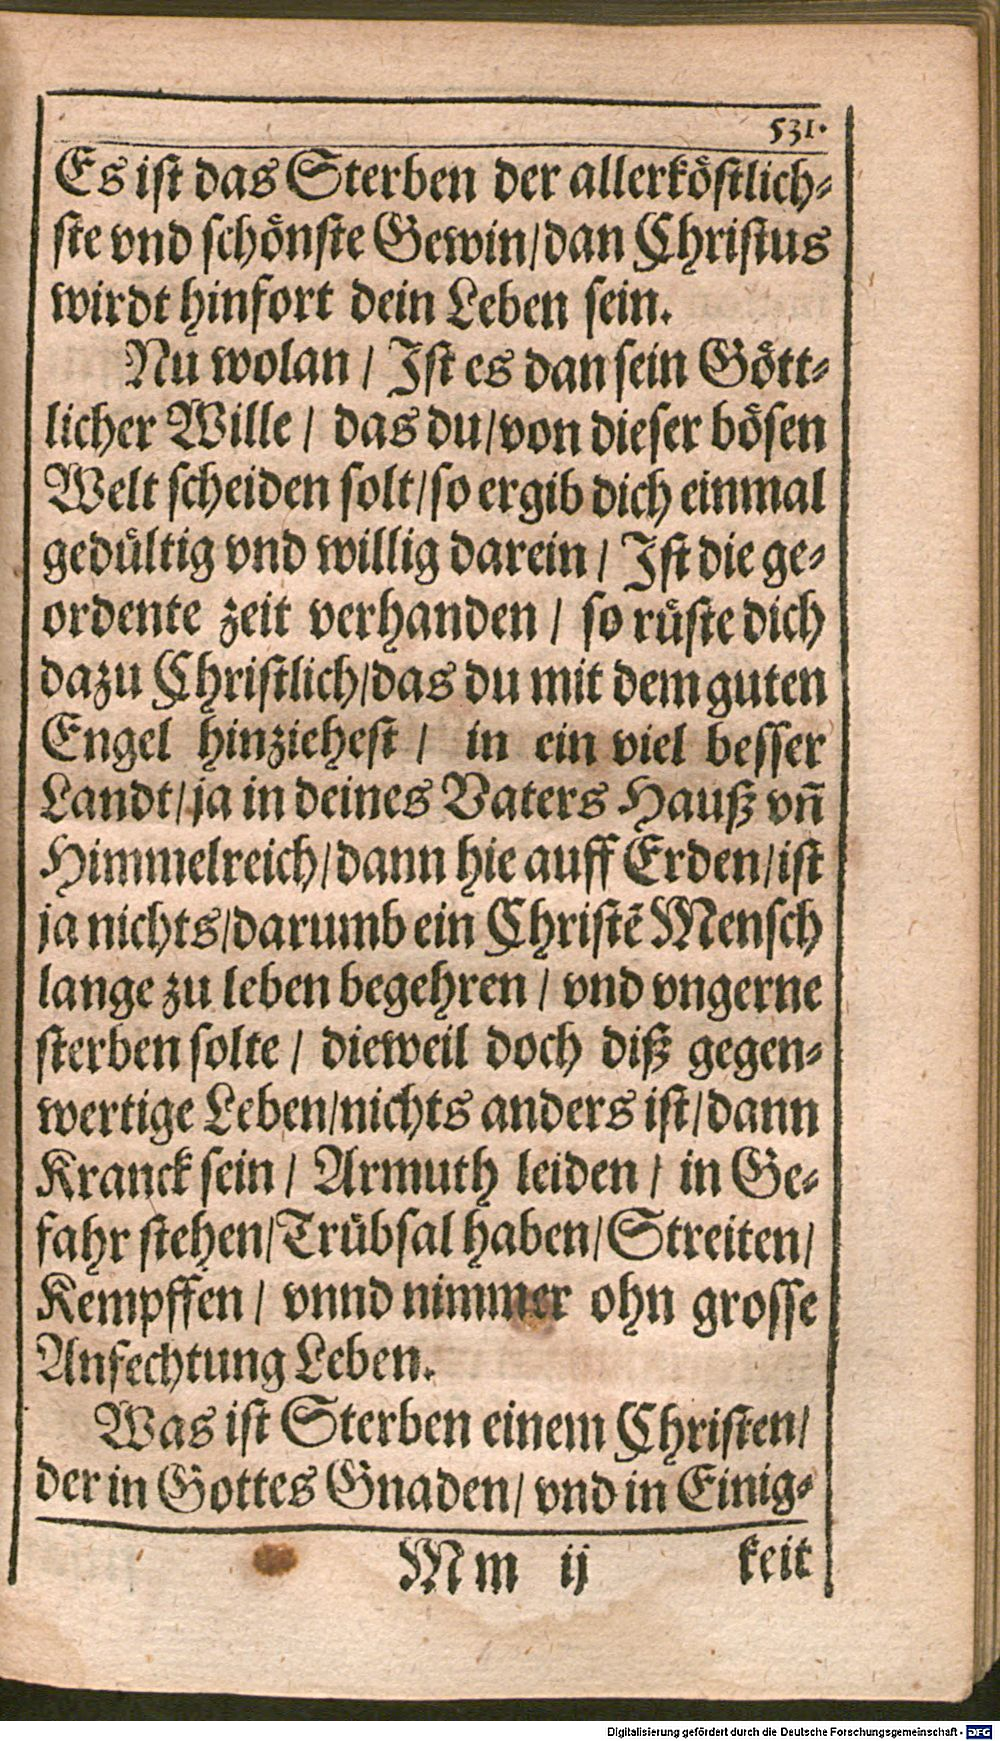 531.
Es iſt das Sterben der allerköſtlich⸗
ſte vnd ſchönſte Gewin/dan Chriſtus
wirdt hinfort dein Leben ſein.
Nu wolan / Iſt es dan ſein Gött⸗
licher Wille / das du/von dieſer böſen
Welt ſcheiden ſolt/ſo ergib dich einmal
gedültig vnd willig darein / Iſt die ge⸗
ordente zeit verhanden / ſo rüſte dich
dazu Chriſtlich/das du mit dem guten
Engel hinzieheſt / in ein viel beſſer
Landt/ja in deines Vaters Hauß vn̄
Himmelreich/dann hie auff Erden/iſt
ja nichts/darumb ein Chriſtē Menſch
lange zu leben begehren / vnd vngerne
ſterben ſolte / dieweil doch diß gegen⸗
wertige Leben/nichts anders iſt/dann
Kranck ſein / Armuth leiden / in Ge⸗
fahr ſtehen/Trübſal haben/Streiten/
Kempffen / vnnd nimmer ohn groſſe
Anfechtung Leben.
Was iſt Sterben einem Chriſten/
der in Gottes Gnaden/ vnd in Einig⸗
M m ij keit
Digitalisierung gefördert durch die Deutsche Forschungsgemeinschaft - DFG